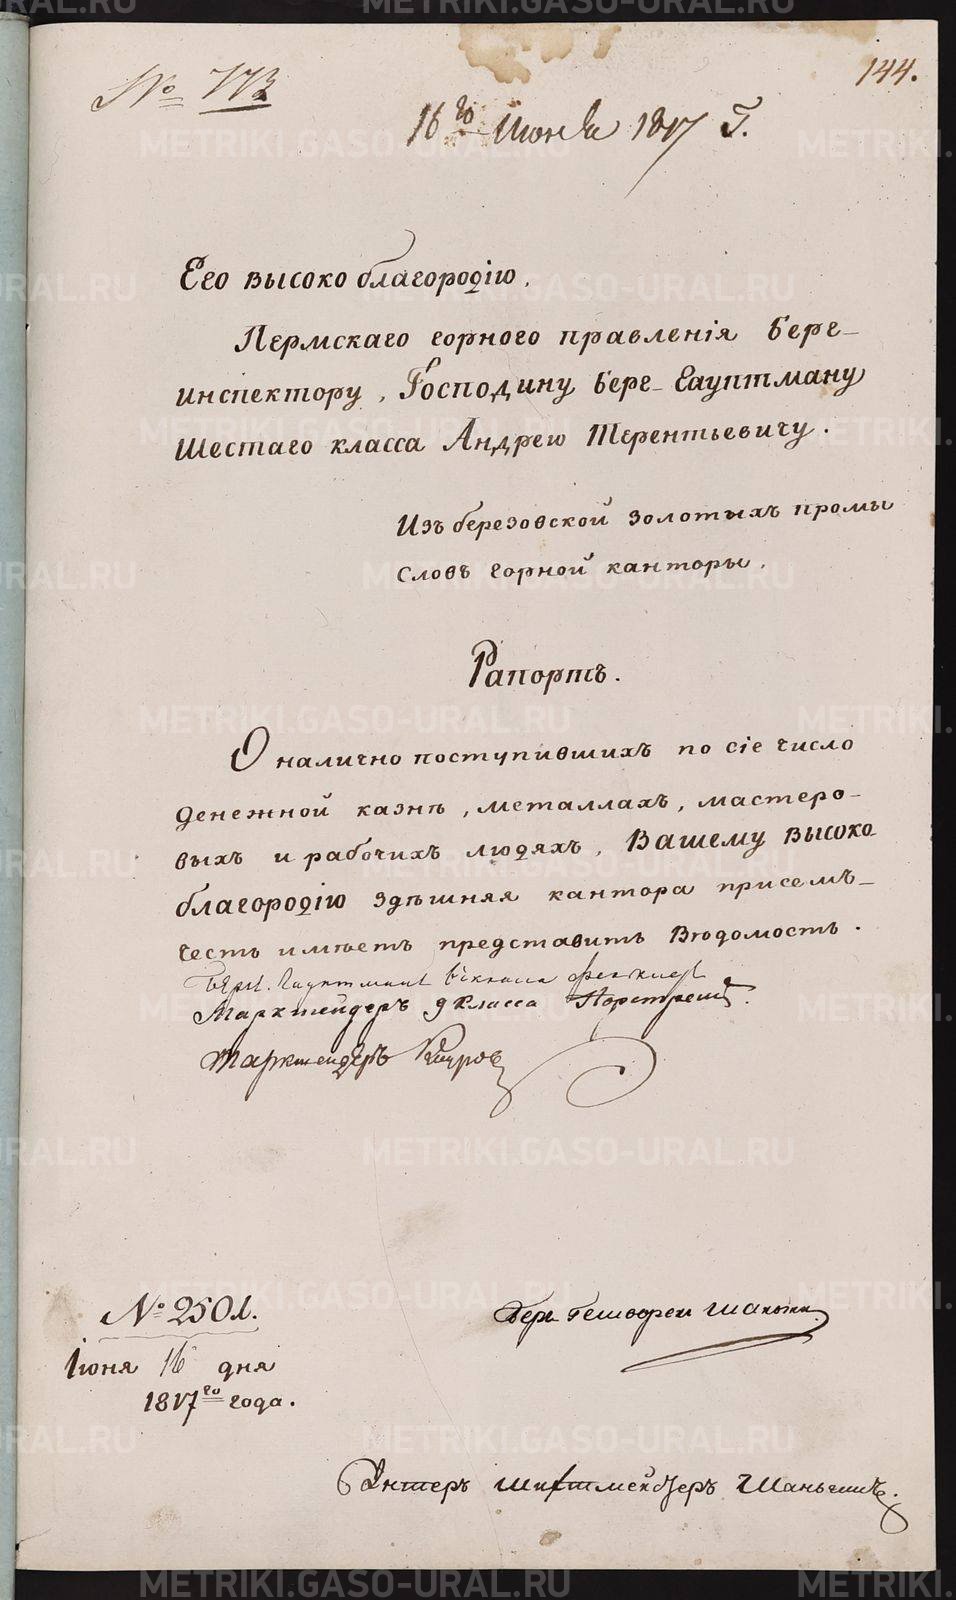 № 773
144.
16го Июня 1817 Г.
Его высоко благородію,
Пермскаго горнаго правленія берг-
инспектору, Господину берг-гауптману
Шестаго класса Андрею Терентьевичу.
Изъ березовской золотыхъ промы
словъ горной канторы,
Рапортъ.
О налично поступившихъ по сіе число
денежной казнѣ, металлахъ, мастеро-
выхъ и рабочихъ людяхъ, Вашему высоко
благородію здѣшняя кантора присемъ-
честь имѣетъ представить Вѣдомость.
Берг. Гауптманъ 6 класса
Маркшейдеръ 9 класса
Маркшейдеръ
№ 2501.
Берг Гешворен
Іюня 16 дня
1817го года.
Унтеръ шихтмейстеръ
METRIKI.GASO-URAL.RU